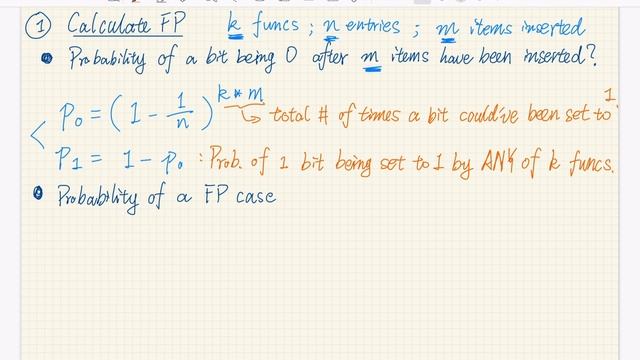 ① Calculate FP k funcs ; n entries ; m items inserted
• Probability of a bit being 0 after m items have been inserted?
p₀ = (1 - 1/n)^k*m → total # of times a bit could've been set to 1
p₁ = 1 - p₀ : Prob. of 1 bit being set to 1 by ANY of k funcs.
• Probability of a FP case